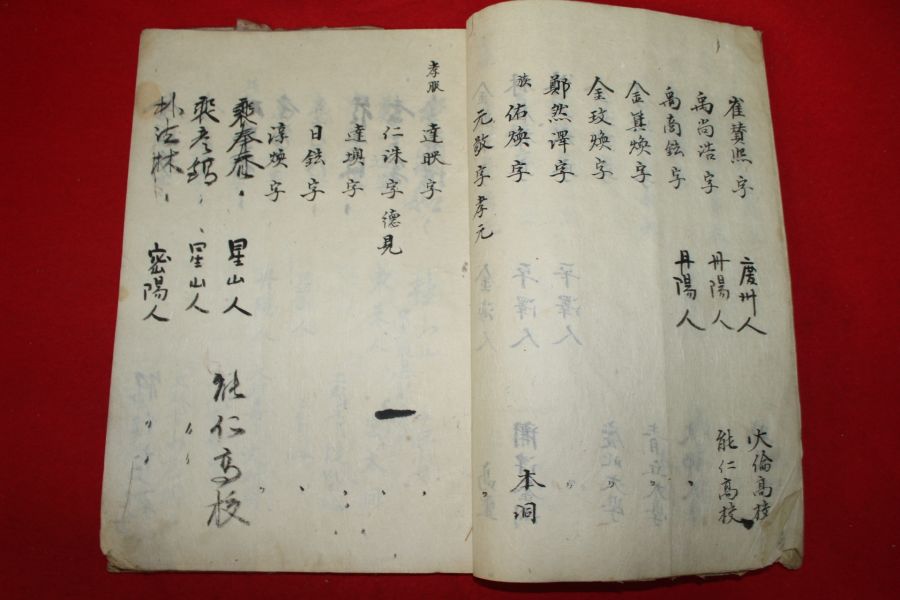 崔賛熙 字 慶州人 大倫高校
禹尚浩 字 丹陽人 能仁高校
禹高鉉 字 丹陽人 〃
金眞煥 字
金玟煥 字 〃
鄭然澤 字 〃
族 佑煥 字 本洞
金元敬 字 孝元 〃
孝服 達映 字 〃
仁洙 字 德見
達塤 字 〃
日鉉 字 〃
淳煥 字 〃
星山人 能仁高校
裵彥鎬 星山人 〃
朴 林 密陽人 〃